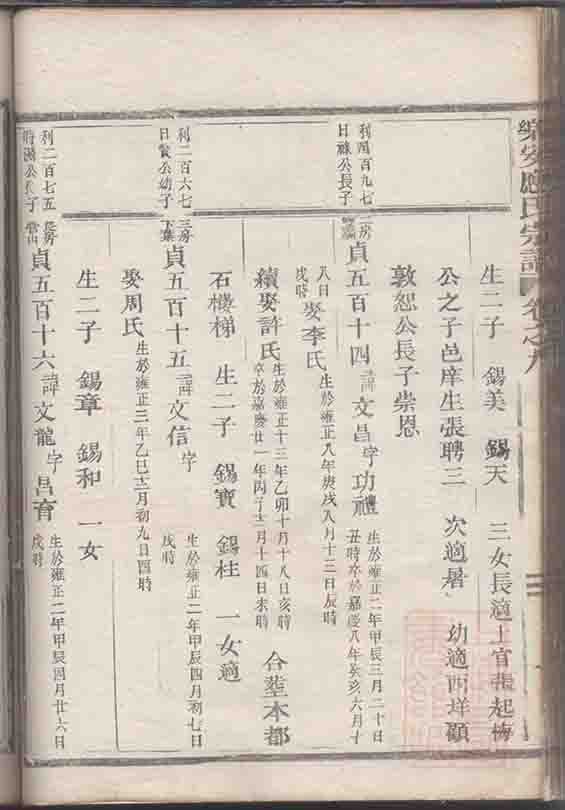 樂安應氏宗譜 卷之九
生二子 錫美 錫天 三女長適上官 起梅
公之子邑庠生張聘三 次適暑 幼適西垟顧
敦恕公長子崇恩
利四百九七
日祿公長子
二房 貞五百十四 諱文昌字功禮 生於雍正二年甲辰三月二十日
丑時卒於嘉慶八年癸亥六月十
八日
戌時 娶李氏 生於雍正八年庚戌八月十三日辰時
續娶許氏 生於雍正十三年乙卯十月十八日亥時
卒於嘉慶廿一年丙子十二月十四日未時 合塟本都
石樓梯 生二子 錫寶 錫桂 一女適
利二百六七
日 公幼子
三房
下葉 貞五百十五 諱文信字 生於雍正二年甲辰四月初七日
戌時
娶周氏 生於雍正三年乙巳十二月初九日酉時
生二子 錫章 錫和 一女
利二百七五
時 公長子
貞五百十六 諱文龍字昌育 生於雍正二年甲辰四月廿六日
戌時